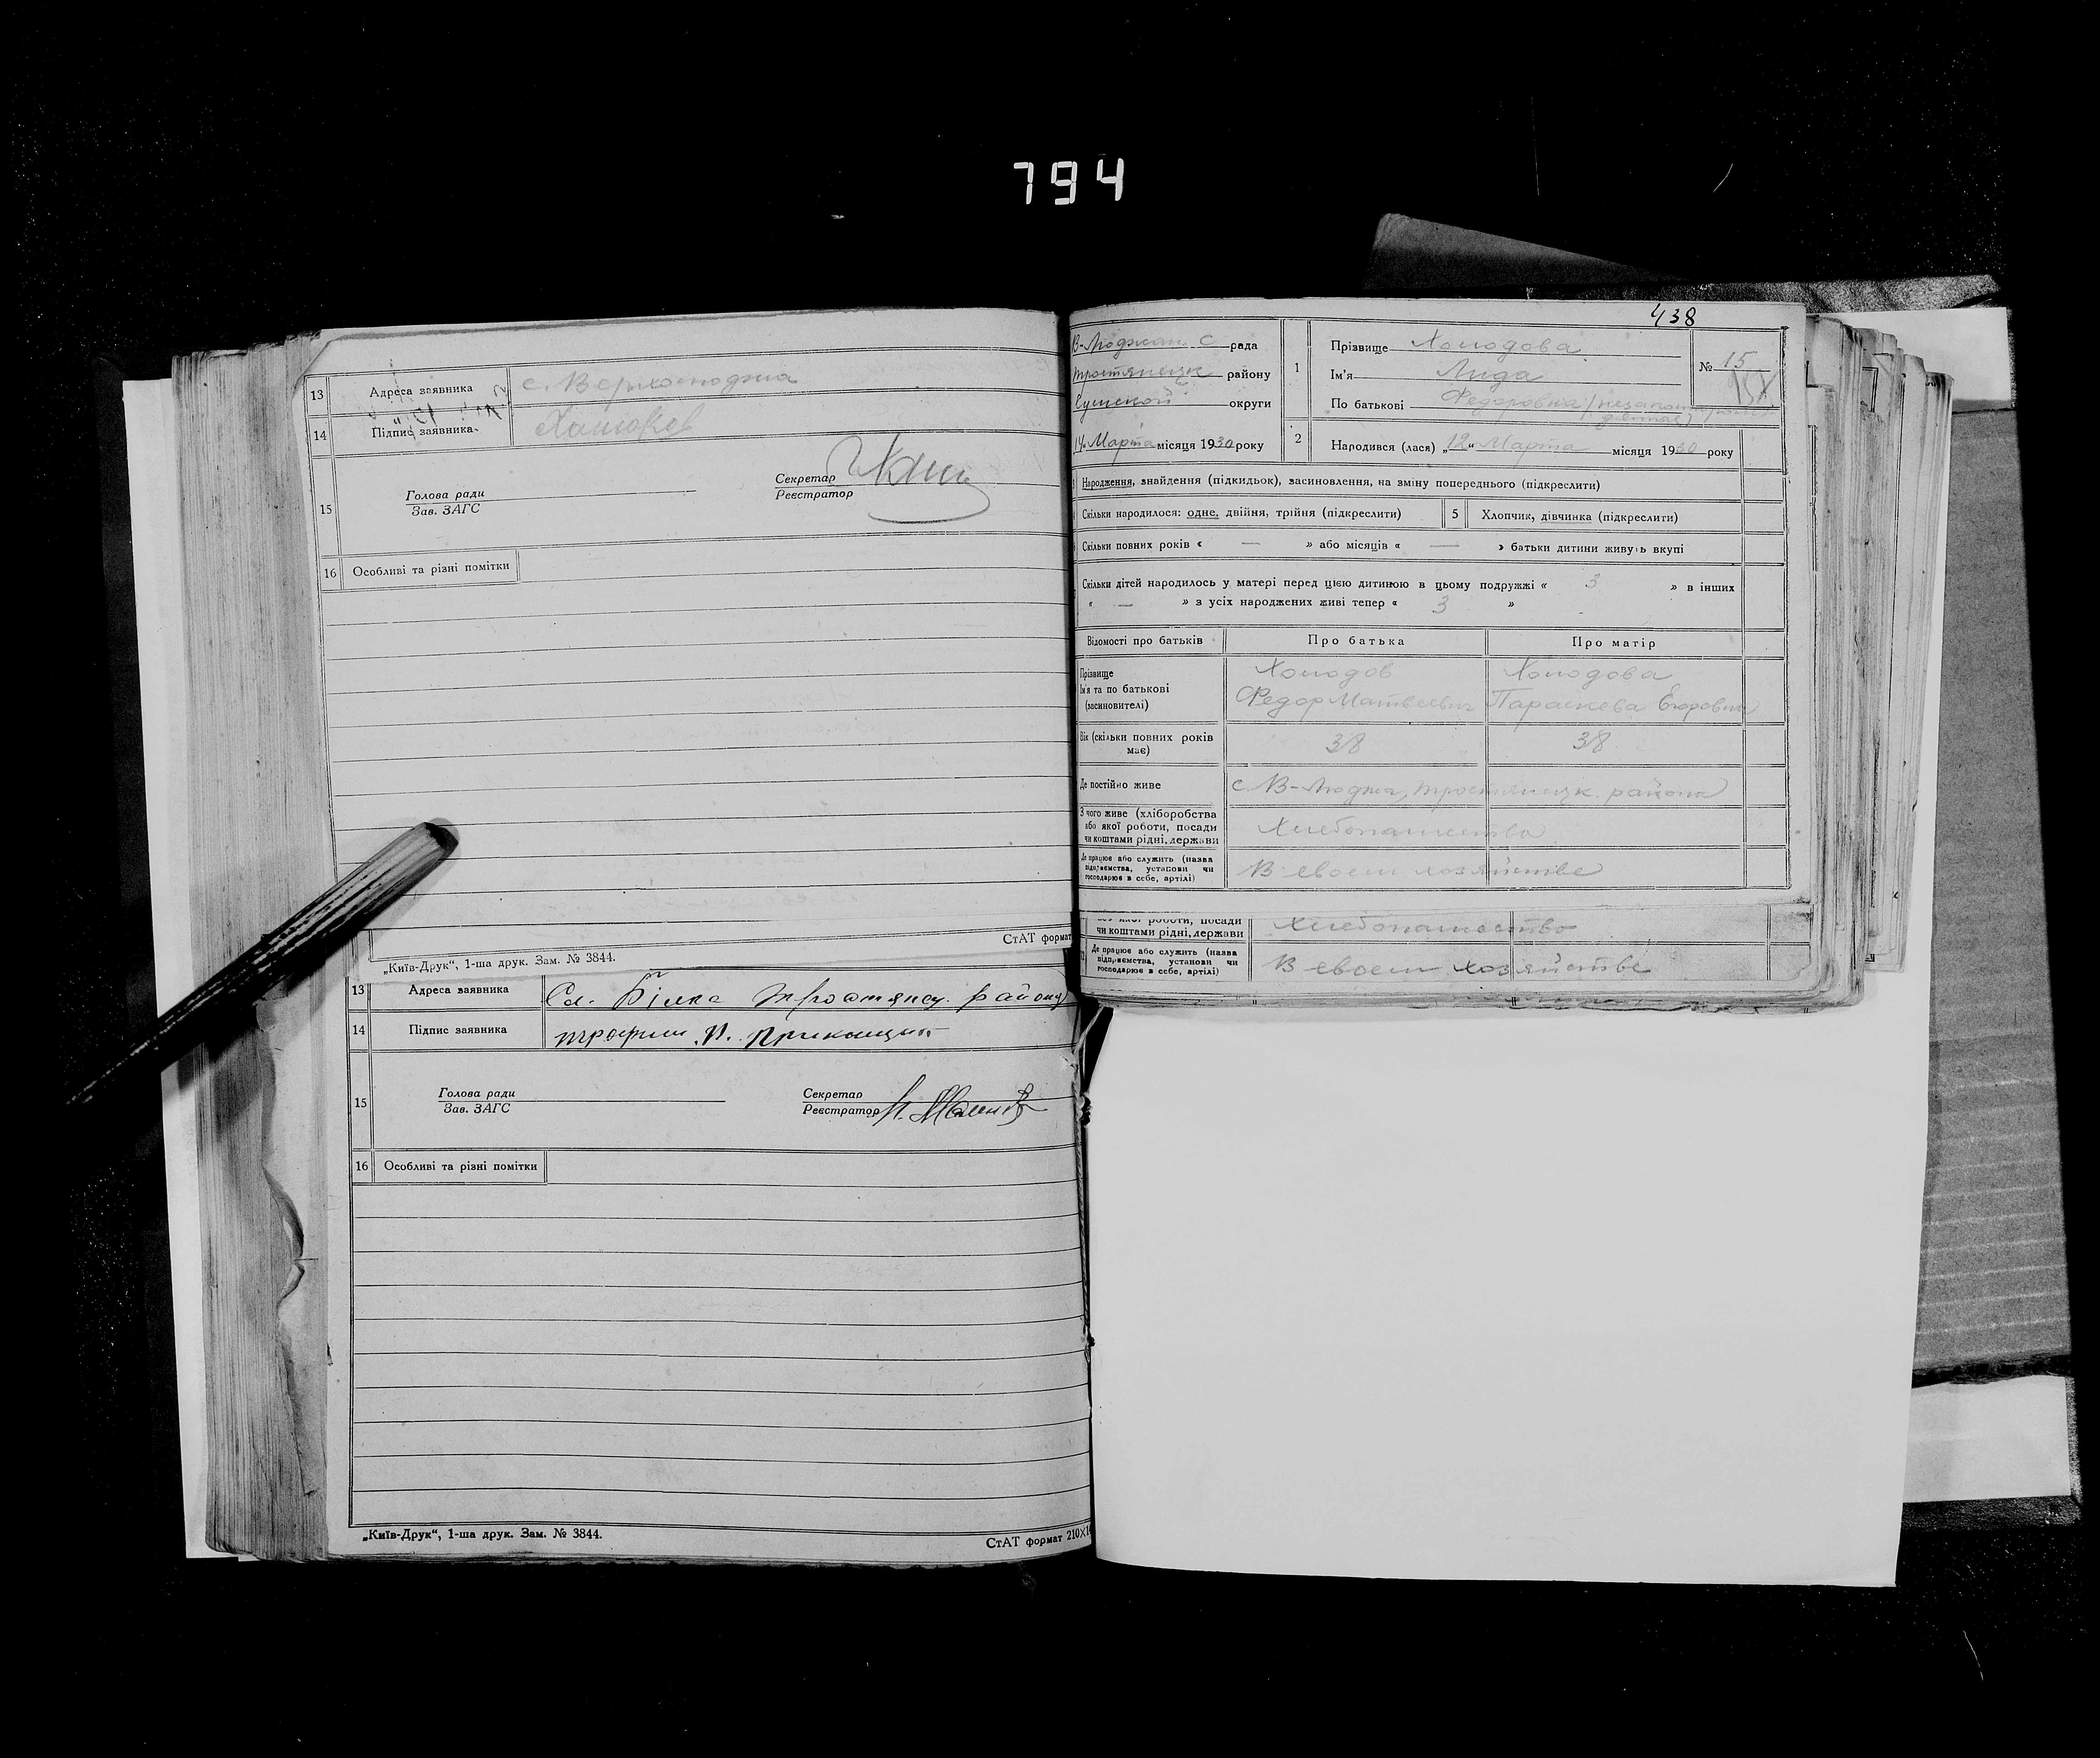 794
13 Адреса заявника с. Верхолюджа
14 Підпис заявника
15 Голова ради
Зав. ЗАГС
Секретар
Реєстратор
16 Особливі та різні помітки
СтАТ формат
„Київ-Друк“, 1-ша друк. Зам. № 3844.
13 Адреса заявника Сл. Білка Тростянец. району
14 Підпис заявника
15 Голова ради
Зав. ЗАГС
Секретар
Реєстратор
16 Особливі та різні помітки
„Київ-Друк“, 1-ша друк. Зам. № 3844.
СтАТ формат 210×1
438
В-Люджан. С рада
Тростянецк району
Сумской округи
14 Марта місяця 1930 року
1 Прізвище Холодова
Ім'я Лида
По батькові Федоровна
№ 15
2 Народився (лася) „12“ Марта місяця 1930 року
Народження, знайдення (підкидьок), засиновлення, на зміну попереднього (підкреслити)
Скільки народилося: одне, двійня, трійня (підкреслити)
5 Хлопчик, дівчинка (підкреслити)
Скільки повних років « — » або місяців « — » батьки дитини живуть вкупі
Скільки дітей народилось у матері перед цією дитиною в цьому подружжі « 3 » в інших
« — » з усіх народжених живі тепер « 3 »
Відомості про батьків Про батька Про матір
Прізвище Холодов Холодова
Ім'я та по батькові Федор Матвеевич Параскева Егоровна
(засиновителі)
Вік (скільки повних років має) 38 38
Де постійно живе с. В-Люджа, Тростянецк. района
З чого живе (хліборобства
або якої роботи, посади
чи коштами рідні, держави Хлебопашество
Де працює або служить (назва
підприємства, установи чи
господарює в себе, артілі) В своем хозяйстве
або якої роботи, посади
чи коштами рідні, держави Хлебопашество
Де працює або служить (назва
підприємства, установи чи
господарює в себе, артілі) В своем хозяйстве